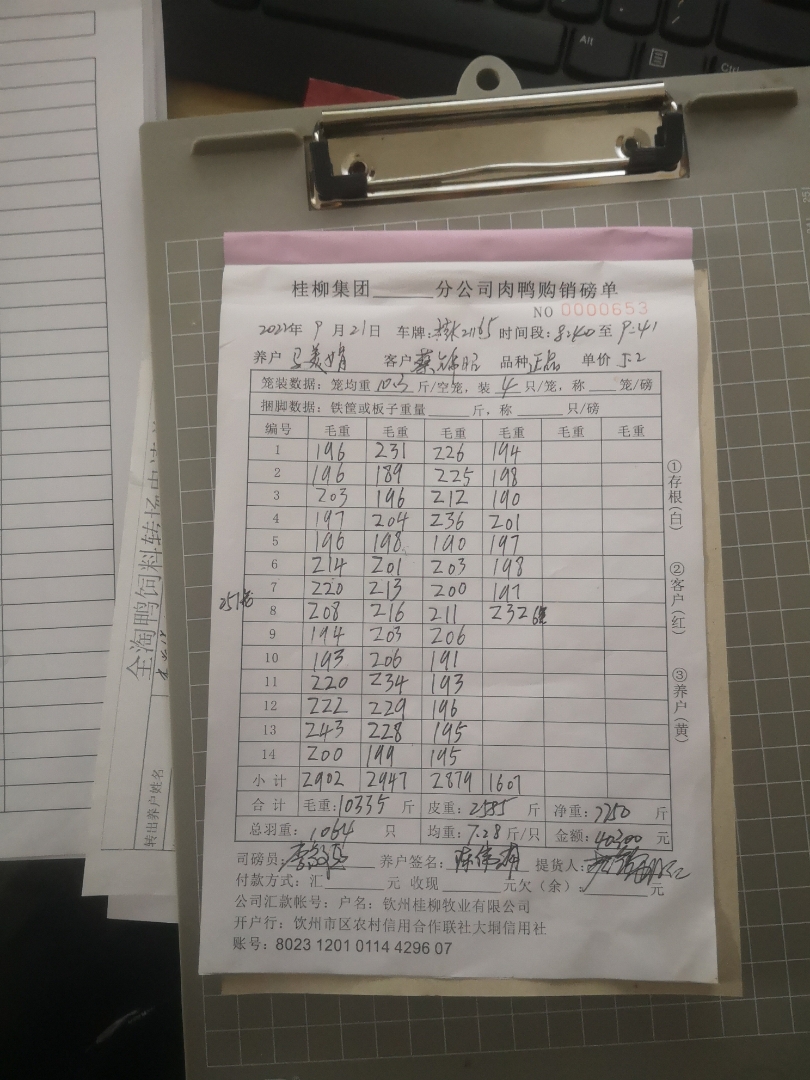 Alt
Ctrl
桂柳集团______分公司肉鸭购销磅单
NO 0000653
2022年 9月21日 车牌: 时间段: 8:40 至 9:41
养户 马美娟 客户 蔡锦昭 品种 正品 单价 5.2
笼装数据：笼均重 10.3 斤/空笼，装 4 只/笼，称____笼/磅
捆脚数据：铁筐或板子重量______斤，称______只/磅
编号 毛重 毛重 毛重 毛重 毛重 毛重
1 196 231 226 194
2 196 189 225 198
3 203 196 212 190
4 197 204 236 201
5 196 198 190 197
6 214 201 203 198
7 220 213 200 197
8 208 216 211 232
9 194 203 206
10 193 206 191
11 220 234 193
12 222 229 196
13 243 228 195
14 200 199 195
小计 2902 2947 2879 1607
合计 毛重: 10335 斤 皮重: 2585 斤 净重: 7750 斤
总羽重: 1064 只 均重: 7.28 斤/只 金额: 40300 元
司磅员: 养户签名: 提货人:
付款方式：汇______元 收现______元欠（余）:______元
公司汇款帐号：户名：钦州桂柳牧业有限公司
开户行：钦州市区农村信用合作联社大垌信用社
账号：8023 1201 0114 4296 07
①存根(白)
②客户(红)
③养户(黄)
251
全淘鸭饲料转场申请
转出养户姓名